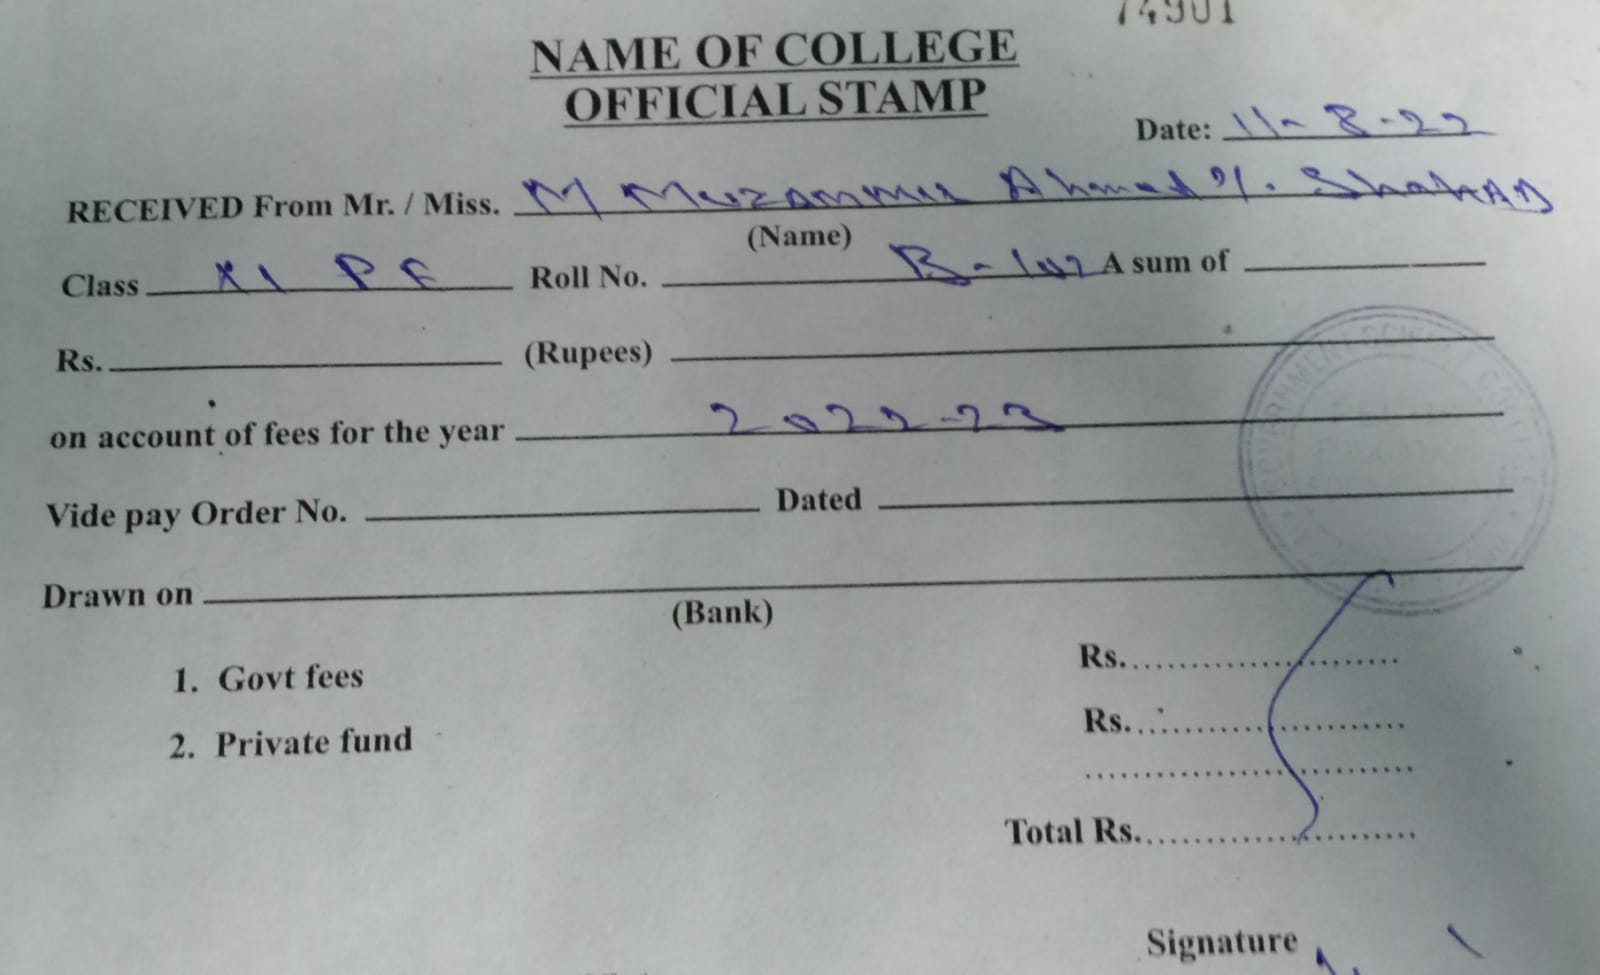 74901
NAME OF COLLEGE
OFFICIAL STAMP
Date: 11-8-22
RECEIVED From Mr. / Miss. M Muzammil Ahmed
(Name)
Class XI PE Roll No. B-102 A sum of
Rs. (Rupees)
on account of fees for the year 2022-23
Vide pay Order No. Dated
Drawn on
(Bank)
1. Govt fees Rs.
2. Private fund Rs.
Total Rs.
Signature
GOVERNMENT SCIENCE COLLEGE